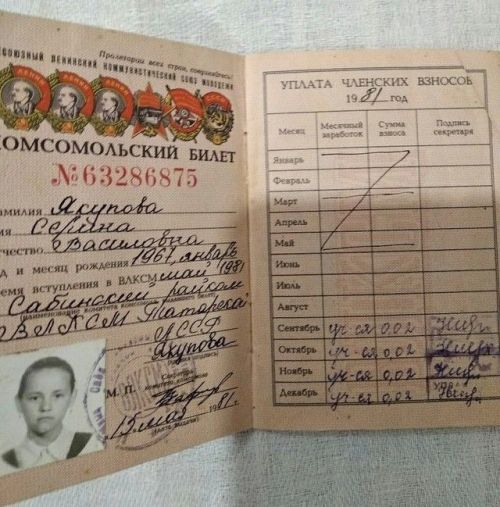 Пролетарии всех стран, соединяйтесь!
СОЮЗНЫЙ ЛЕНИНСКИЙ КОММУНИСТИЧЕСКИЙ СОЮЗ МОЛОДЕЖИ
ЛЕНИН ЛЕНИН ЛЕНИН
КОМСОМОЛЬСКИЙ БИЛЕТ
№63286875
амилия Якупова
мя
чество Василовна
д и месяц рождения 1967, январь
емя вступления в ВЛКСМ май 1981
Сабинский райком
(наименование комитета комсомола, выдавшего билет)
ВЛКСМ Татарской
АССР
Якупова
(личная подпись)
М. П. Секретарь
комитета комсомола
"15" мая 1981 г.
(дата выдачи)
УПЛАТА ЧЛЕНСКИХ ВЗНОСОВ
1981 год
Месяц Месячный заработок Сумма взноса Подпись секретаря
Январь
Февраль
Март
Апрель
Май
Июнь
Июль
Август
Сентябрь уч-ся 0,02
Октябрь уч-ся 0,02
Ноябрь уч-ся 0,02
Декабрь уч-ся 0,02